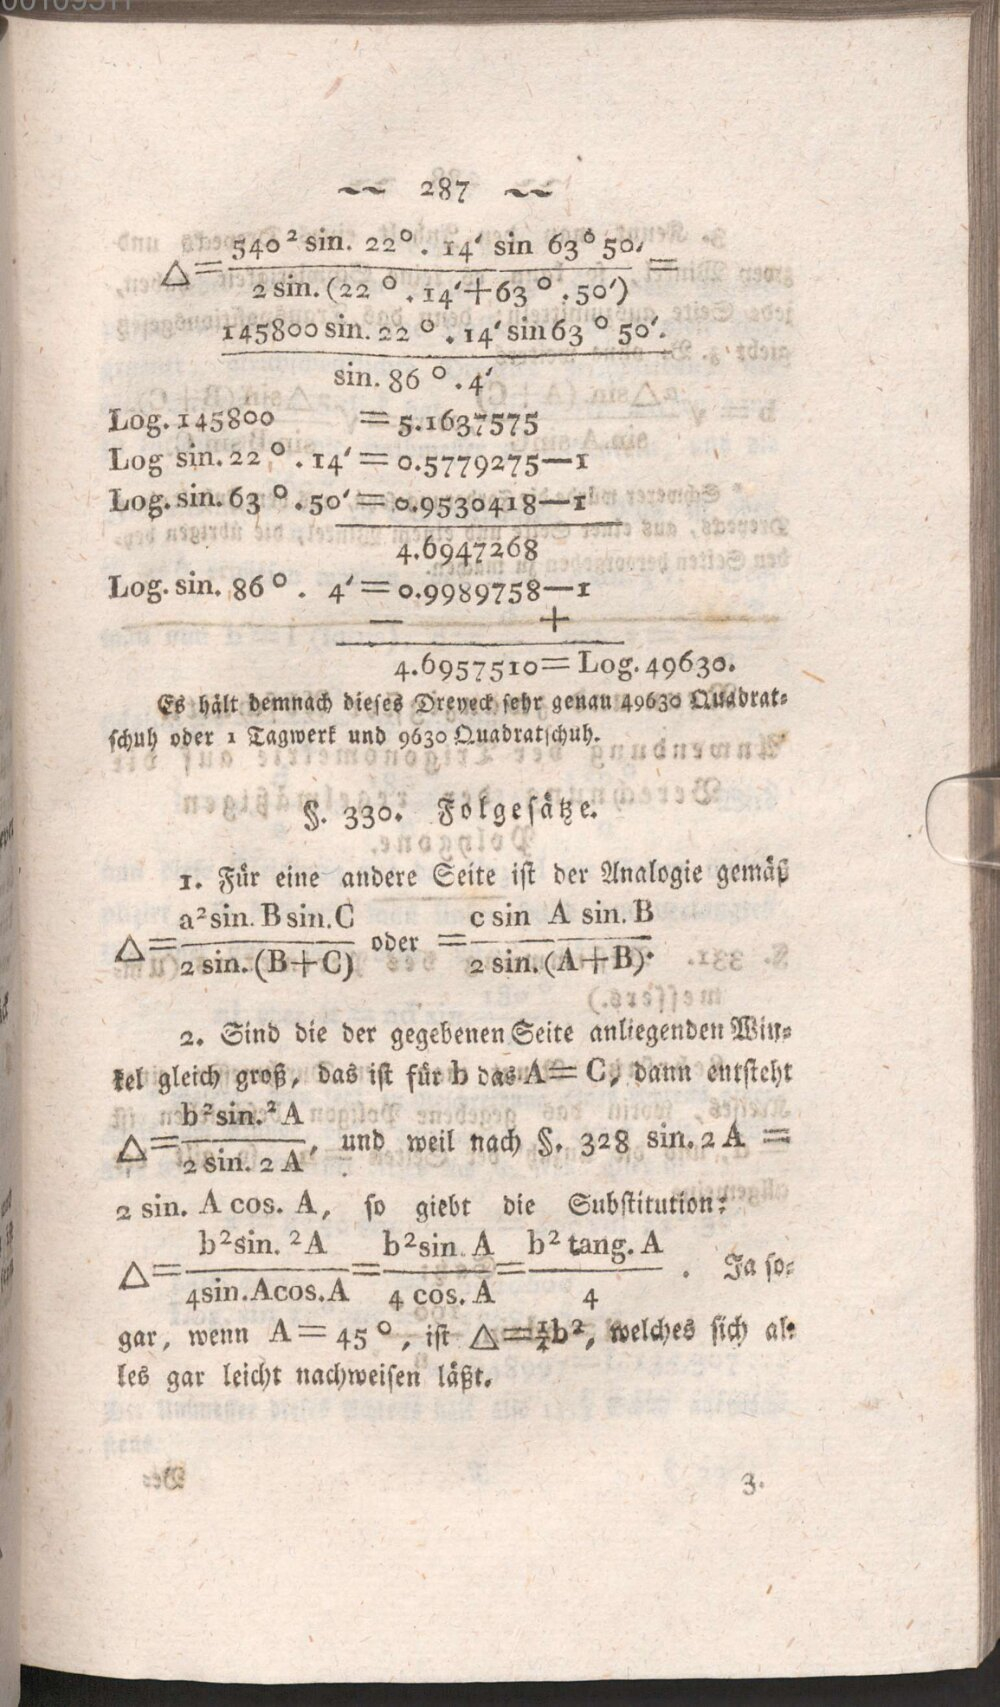 287
△ = 540² sin. 22°. 14′ sin 63° 50′ / 2 sin. (22°. 14′ + 63°. 50′) =
145800 sin. 22°. 14′ sin 63° 50′. / sin. 86°. 4′
Log. 145800 = 5.1637575
Log sin. 22°. 14′ = 0.5779275—1
Log. sin. 63°. 50′ = 0.9530418—1
4.6947268
Log. sin. 86°. 4′ = 0.9989758—1
— +
4.6957510 = Log. 49630.
Es hält demnach dieses Dreyeck sehr genau 49630 Quadrat-
schuh oder 1 Tagwerk und 9630 Quadratschuh.
§. 330. Folgesätze.
1. Für eine andere Seite ist der Analogie gemäß
△ = a² sin. B sin. C / 2 sin. (B+C) oder = c sin A sin. B / 2 sin. (A+B).
2. Sind die der gegebenen Seite anliegenden Win-
kel gleich groß, das ist für b das A = C, dann entsteht
△ = b² sin.² A / 2 sin. 2 A, und weil nach §. 328 sin. 2 A =
2 sin. A cos. A, so giebt die Substitution:
△ = b² sin. ² A / 4 sin. A cos. A = b² sin A / 4 cos. A = b² tang. A / 4. Ja so-
gar, wenn A = 45°, ist △ = ¼b², welches sich al-
les gar leicht nachweisen läßt.
3.